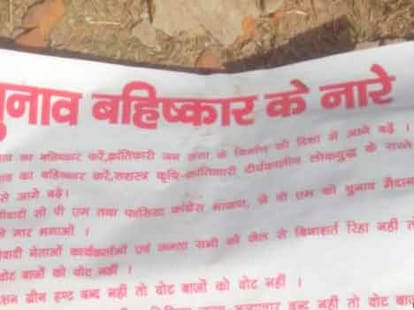 ुनाव बहिष्कार के नारे
ाव का बहिष्कार करें, क्रांतिकारी जन सत्ता के निर्माण की दिशा में आगे बढ़ें ।
ाव का बहिष्कार करें, सशस्त्र कृषि-क्रांतिकारी दीर्घकालीन लोकयुद्ध के रास्ते
से आगे बढ़ें।
वादी सी पी एम तथा फासिस्ट कांग्रेस भाजपा, जे वी एम को चुनाव मैदान
मार भगाओ ।
वादी नेताओं कार्यकर्ताओं एवं जनता सभी को जेल से बिनाशर्त रिहा नहीं त
वोट बाजों को वोट नहीं ।
शन ग्रीन हण्ट बन्द नहीं तो वोट बाजों को वोट नहीं ।
बन्द नहीं तो वोट बा